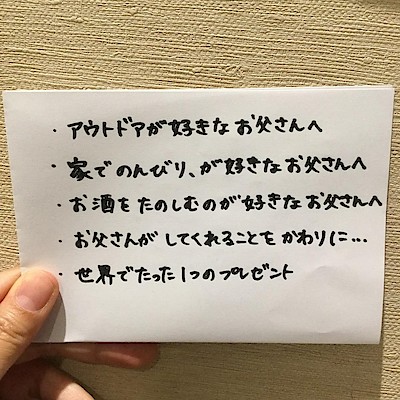 ・アウトドアが好きなお父さんへ
・家でのんびり、が好きなお父さんへ
・お酒をたのしむのが好きなお父さんへ
・お父さんがしてくれることをかわりに…
・世界でたった1つのプレゼント